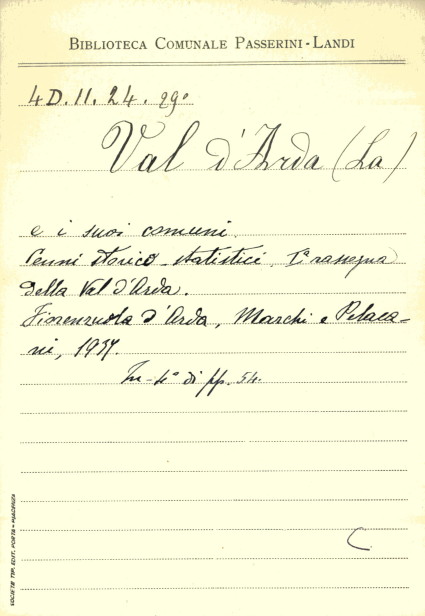 BIBLIOTECA COMUNALE PASSERINI-LANDI
4 D. II. 24. 29°
Val d'Arda (La)
e i suoi comuni.
Cenni storico statistici. Iª rassegna
della Val d'Arda.
Fiorenzuola d'Arda, Marchi e Pelaca-
ni, 1937.
In-4° di pp. 54.
C
SOCIETÀ TIP. EDIT. PORTA - PIACENZA